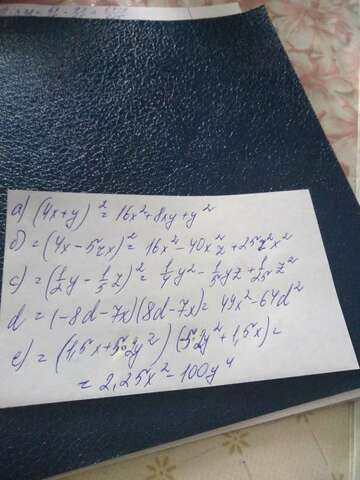 а) (4x+y)² = 16x²+8xy+y²
б) = (4x-5zx)² = 16x²-40x²z+25z²x²
c) = (1/2y - 1/5z)² = 1/4y² - 1/5yz + 1/25z²
d = (-8d-7x)(8d-7x) = 49x²-64d²
e) = (1,5x+ y²)( y²+1,5x) =
= 2,25x²-100y⁴